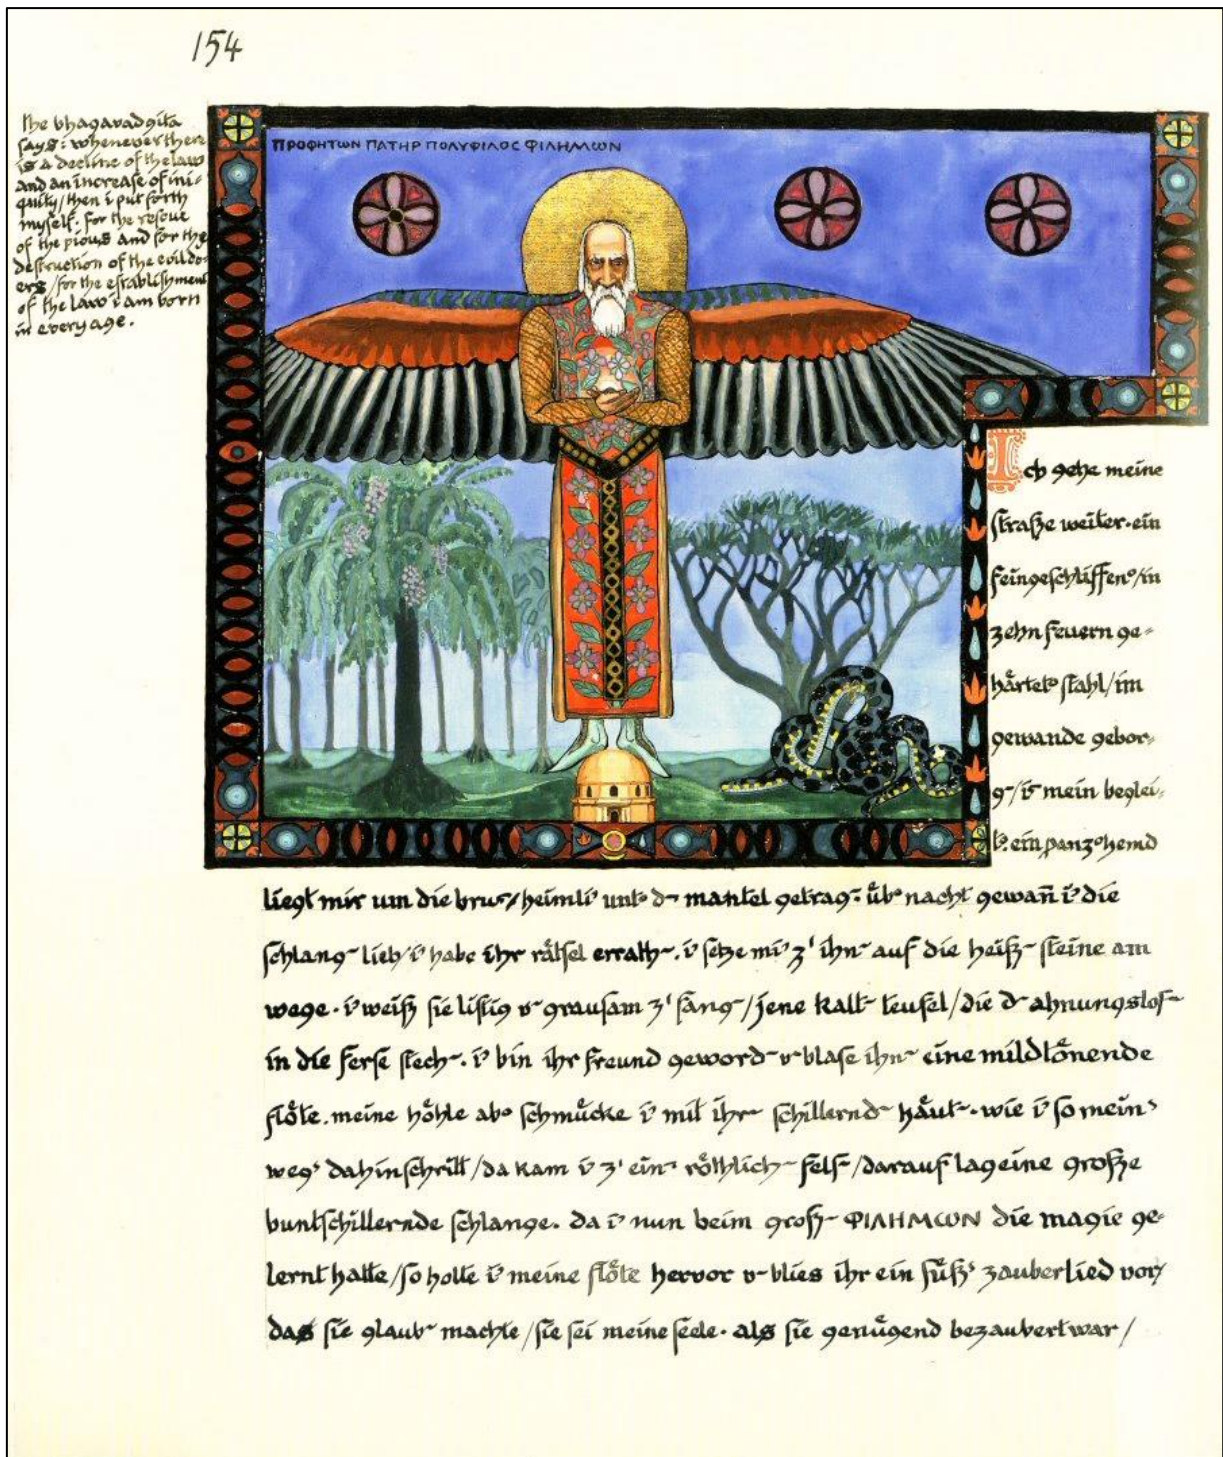 154
the bhagavadgita
says: whenever there
is a decline of the law
and an increase of ini-
quity/then i put forth
myself. for the rescue
of the pious and for the
destruction of the evildo-
ers/for the establishment
of the law i am born
in every age.
ΠΡΟΦΗΤΩΝ ΠΑΤΗΡ ΠΟΛΥΦΙΛΟΣ ΦΙΛΗΜΩΝ
Ich gehe meine
straße weiter. ein
feingeschliffen°/in
zehn feuern ge-
härtet° stahl/im
gewande gebor-
g~/is mein beglei-
t°. ein panz°hemd
liegt mir um die brus/heimli' unt° d~ mantel getrag~. üb° nacht gewañ i' die
schlang~ lieb/i' habe ihr rätsel errath~. i' setze mi' z' ihn~ auf die heiß~ steine am
wege. i' weiß sie listig v~ grausam z' fang~/jene kalt~ teufel/die d~ ahnungslos~
in die ferse stech~. i' bin ihr freund geword~ v~ blase ihn~ eine mildtönende
flöte. meine höhle ab° schmücke i' mit ihr~ schillernd~ häut~. wie i' so mein'
weg' dahinschritt/da kam i' z' ein~ röthlich~ fels/darauf lag eine große
buntschillernde schlange. da i' nun beim groß~ ΦΙΛΗΜΩΝ die magie ge-
lernt hatte/so holte i' meine flöte hervor v~ blies ihr ein süß' zauberlied vor/
das sie glaub~ machte/sie sei meine seele. als sie genügend bezaubert war/